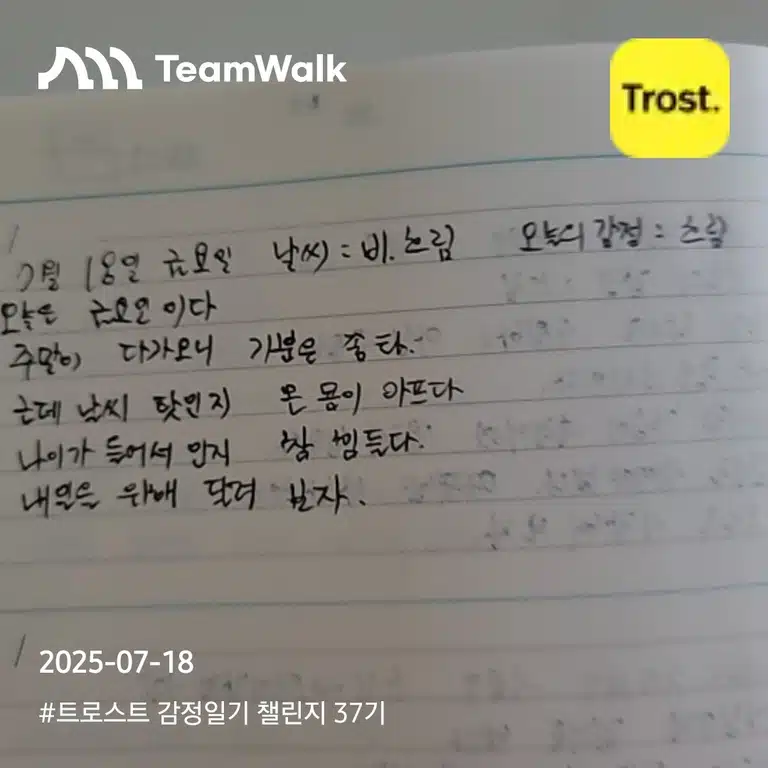 TeamWalk
Trost.
7월 18일 금요일 날씨 : 비. 흐림 오늘의 감정 : 흐림
오늘은 금요일이다
주말이 다가오니 기분은 좋타.
근데 날씨 탓인지 온 몸이 아프다
나이가 들어서 인지 참 힘들다.
내일을 위해 달려 보자.
2025-07-18
#트로스트 감정일기 챌린지 37기